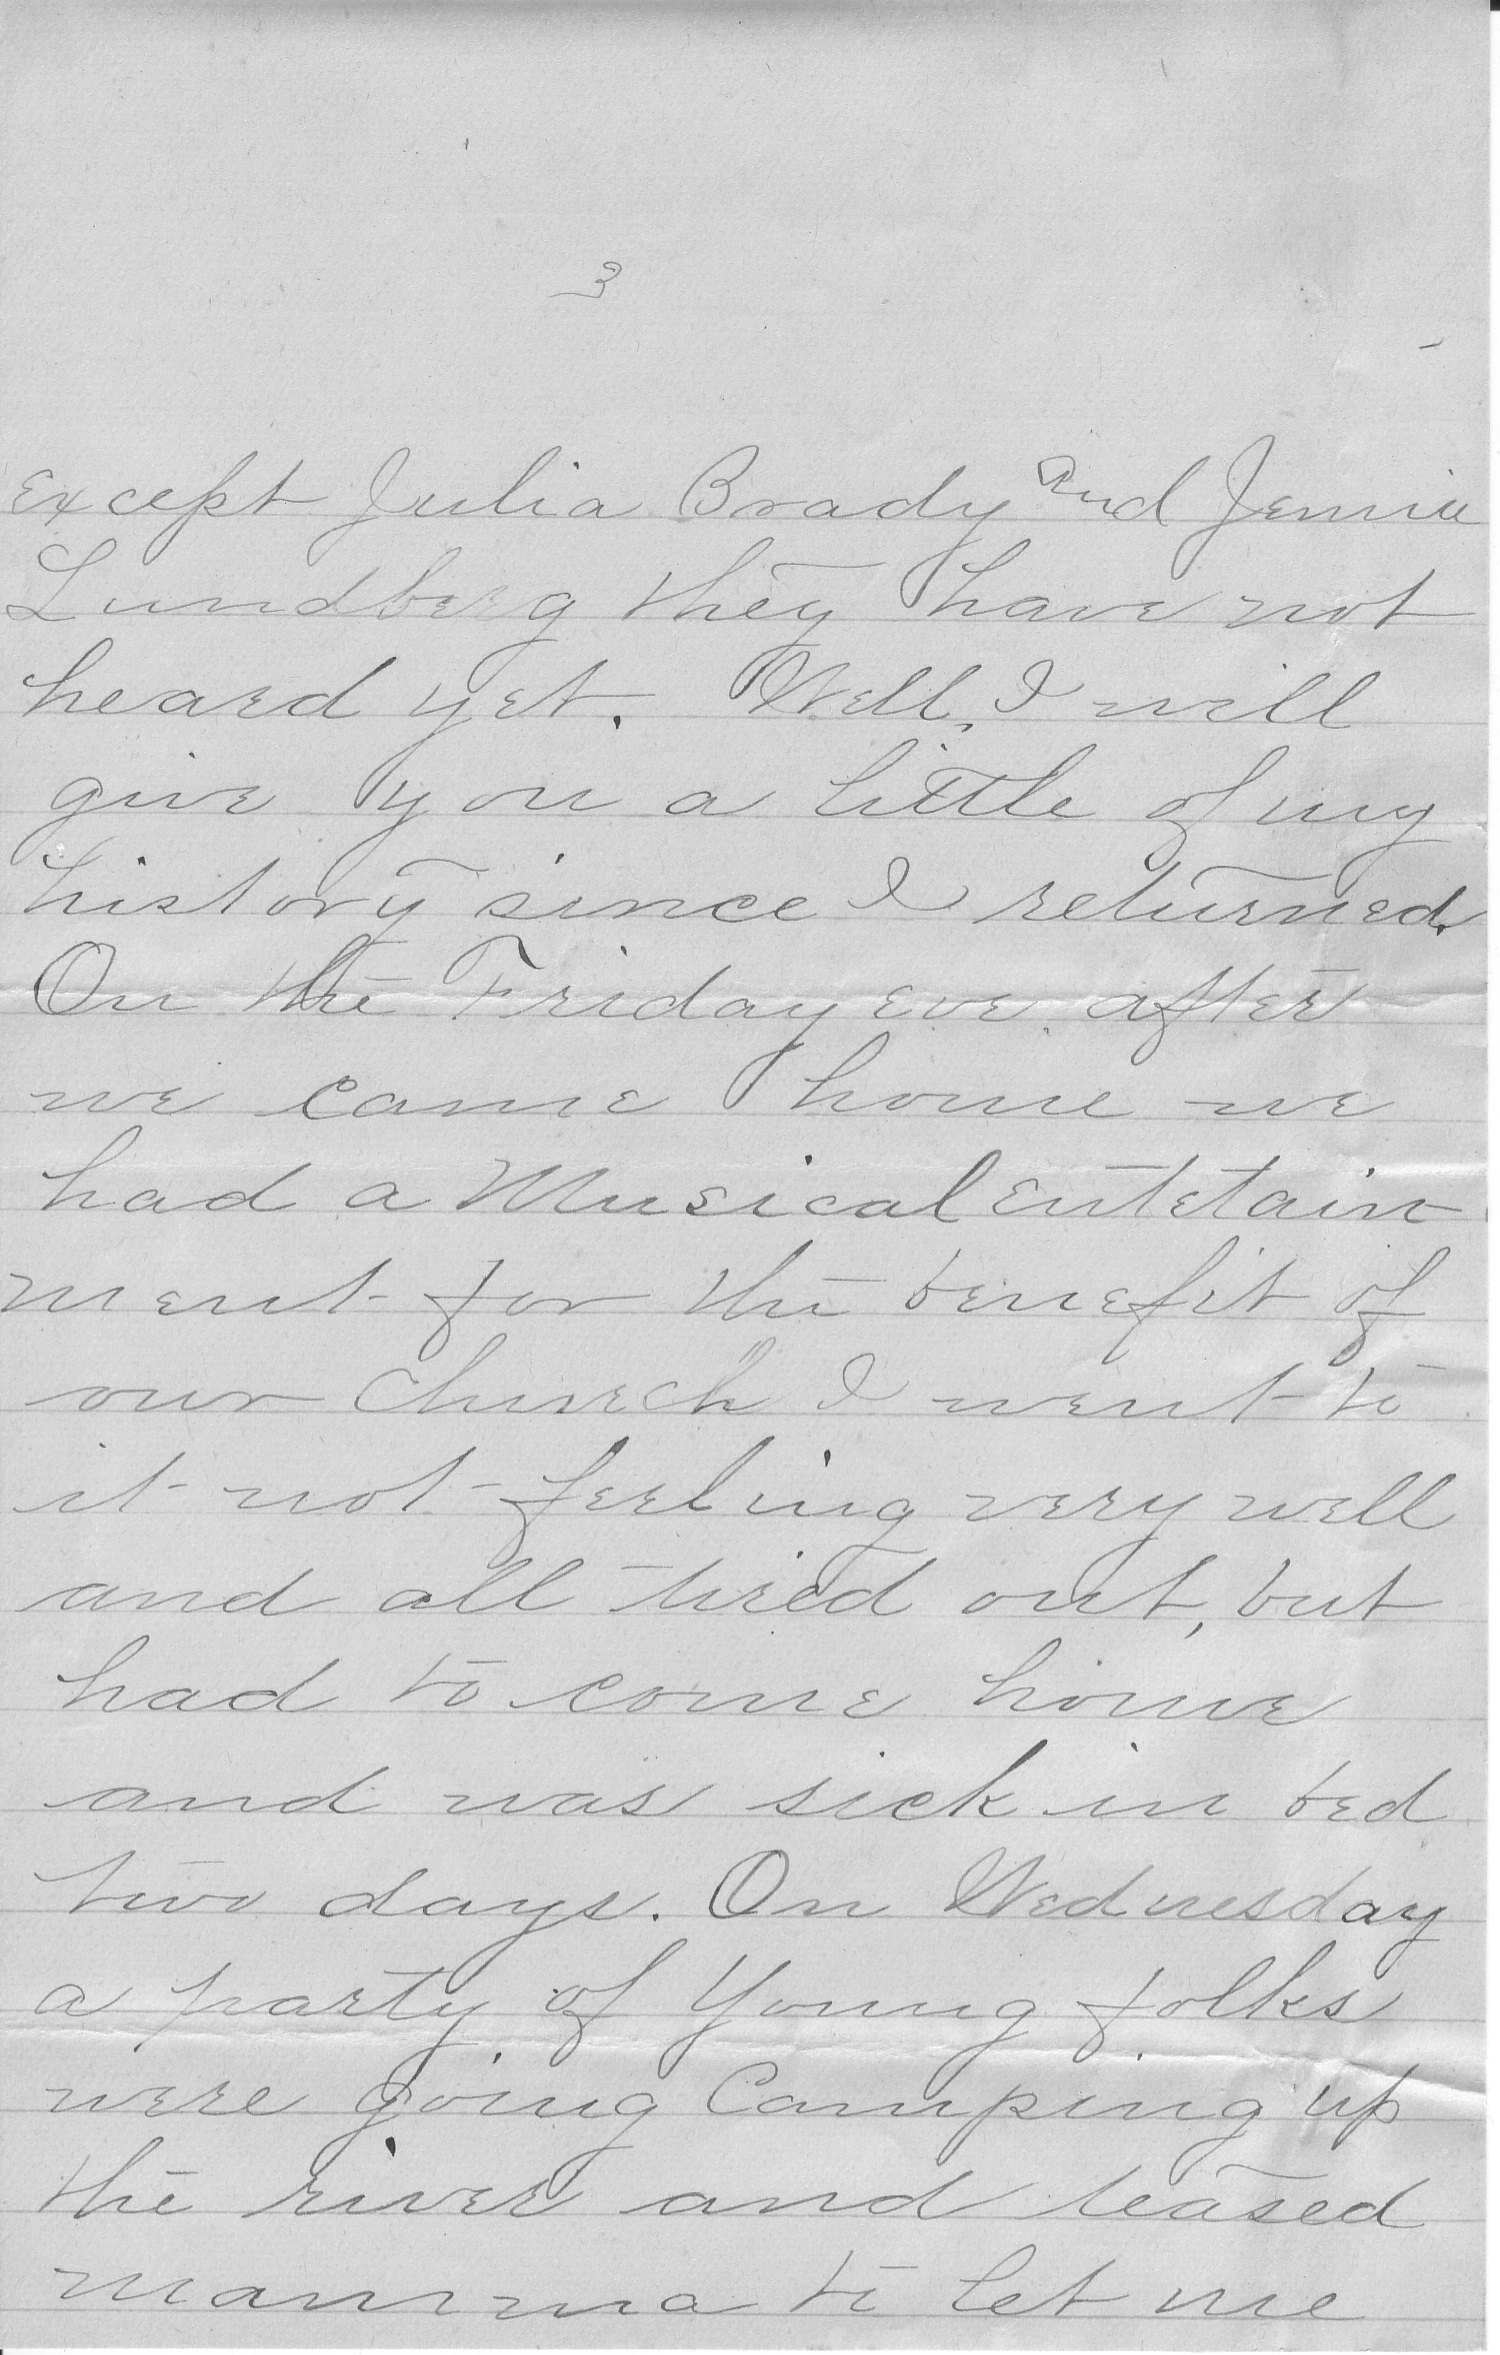 3
Except Julia Brady and Jennie
Lundberg they have not
heard yet. Well, I will
give you a little of my
history since I returned.
On the Friday eve after
we came home we
had a Musical entetain
ment for the benefit of
our church I went to
it not feeling very well
and all tired out, but
had to come home
and was sick in bed
two days. On Wednesday
a party of Young folks
were going Camping up
the river and teased
mamma to let me